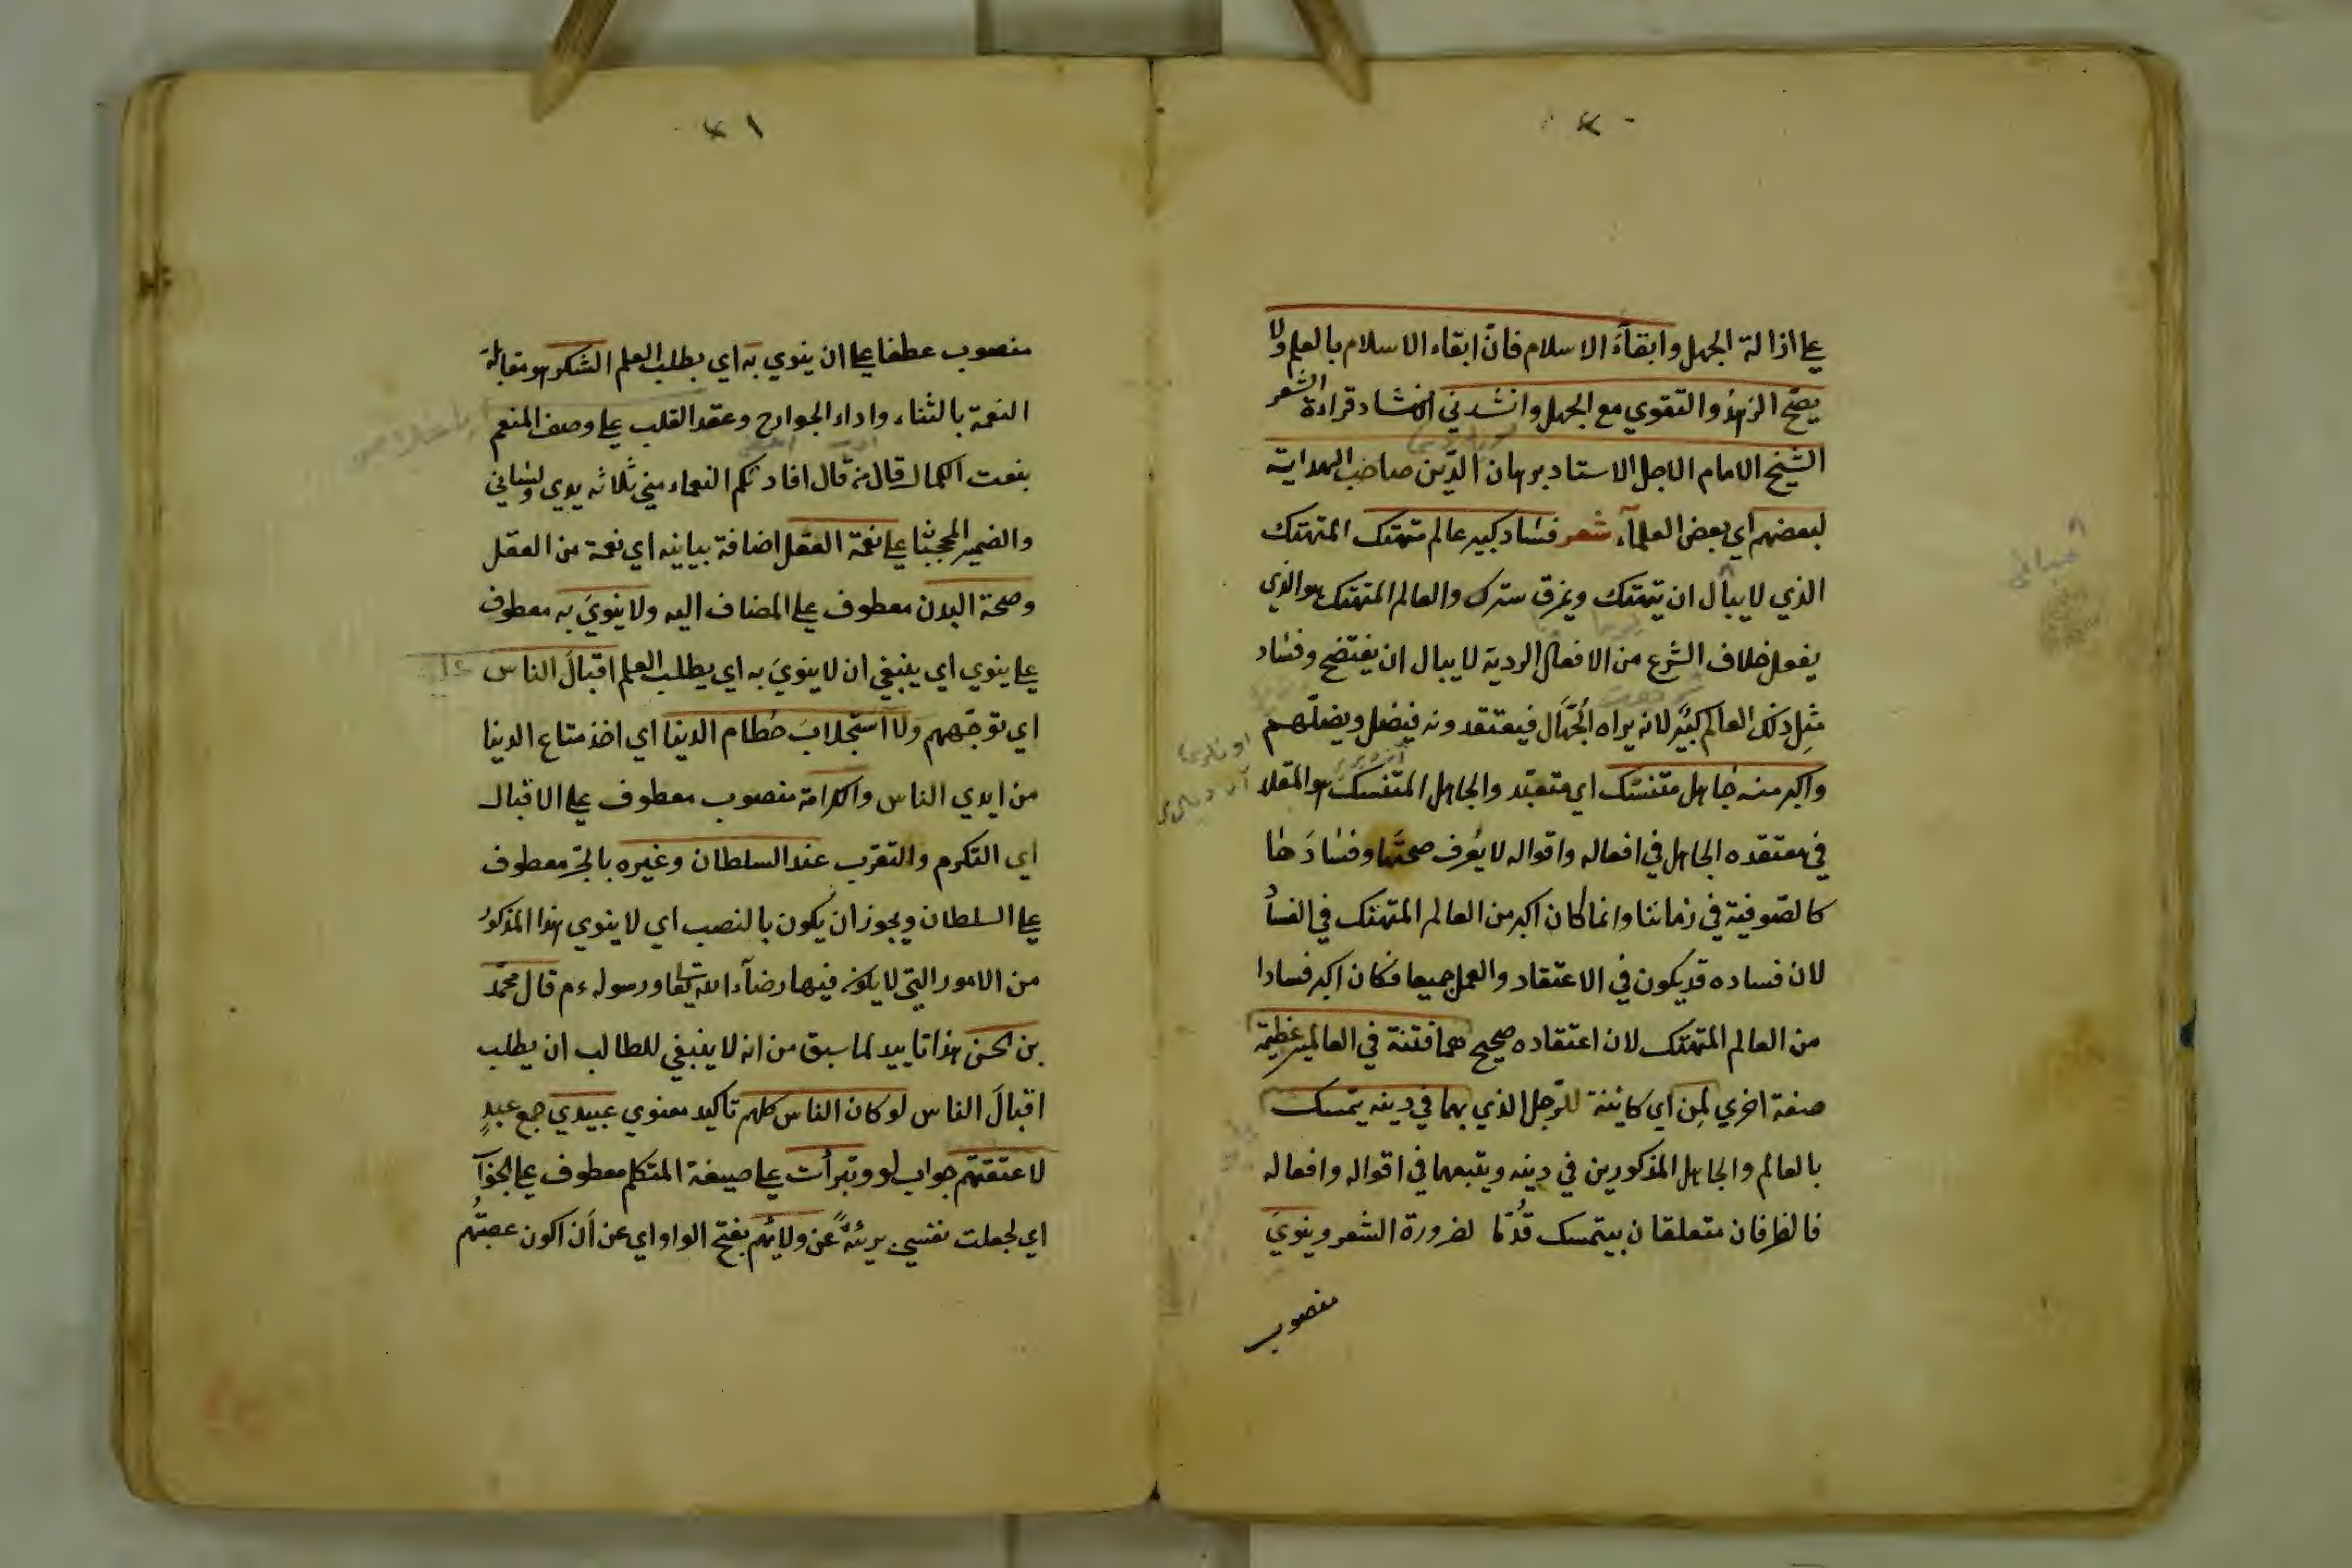 على ازالة الجهل وابقاءَ الاسلام فانّ ابقاء الاسلام بالعلم ولا
يصحّ الزهدُ والتقوي مع الجهل وانشدني الانشاد قراءة الشعر
الشيخ الامام الاجل الاستاد برهان الدّين صاحب الهداية
لبعضهم اي بعض العلمآء شعر فساد كبير عالم متهتك المتهتك
الذي لا يبال ان يتهتك ويخرق سترك والعالم المتهتك هو الذي
يفعل خلاف الشرع من الافعال الردية لا يبال ان يفتضح وفساد
مثِل ذلك العالم كبيرٌ لانه يراه الجُهّال فيعتقدونه فيضل ويضلّهم
واكبر منه جاهل متنسّك اي متعبّد والجاهل المتنسك هو المقلد
في معتقده الجاهل في افعاله واقواله لا يُعرف صحتها وفسادَها
كالصّوفية في زماننا وانما كان اكبر من العالم المتهتك في الفساد
لان فساده قد يكون في الاعتقاد والعمل جميعا فكان اكبر فسادا
من العالم المتهتك لان اعتقاده صحيح هما فتنة في العالمين عظيمة
صفة اخري لمِن اي كائنة للرّجل الذي بهما في دينه يتمسك
بالعالم والجاهل المذكورين في دينه ويتبعهما في اقواله وافعاله
فالظرفان متعلقان بيتمسك قُدّما لضرورة الشعر وينويَ
منصوب
٤١
منصوب عطفا على ان ينوي به اي بطلب العلم الشكر هو مقابلة
النعمة بالثناء واداء الجوارح وعقد القلب على وصف المنعم
بنعت الكمال قال من قال افادتكم النعماء مني ثلاثه يدي ولساني
والضمير المحجبا على نعمة العقل اضافة بيانيه اي نعمة من العقل
وصحة البدن معطوف على المضاف اليه ولا ينويَ به معطوف
على ينوي اي ينبغي ان لا ينويَ به اي بطلب العلم اقبالَ الناس
اي توجّههم ولا استجلابَ حُطام الدنيا اي اخذ متاع الدنيا
من ايدي الناس والكرامة منصوب معطوف على الاقبال
اي التكرم والتقرب عند السلطان وغيره بالجرّ معطوف
على السلطان ويجوز ان يكون بالنصب اي لا ينوي هذا المذكورُ
من الامور التي لا يكون فيها رضآء الله تعالى ورسوله ءم قال محمّد
بن الحسن هذا تاييد لما سبق من انه لا ينبغي للطالب ان يطلب
اقبالَ الناس لو كان الناس كلهم تاكيد معنوي عبيدي جمع عبدٍ
لاعتقتهم جواب لو وتبرأت على صيغة المتكلم معطوف على الجزآء
اي لجعلت نفسي بريئةً عن ولائهم بفتح الواو اي عن أن اكون عصبتُهم